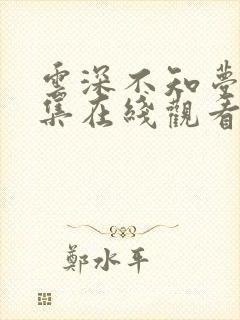 雲深不知夢
集在綫觀看
鄭水平